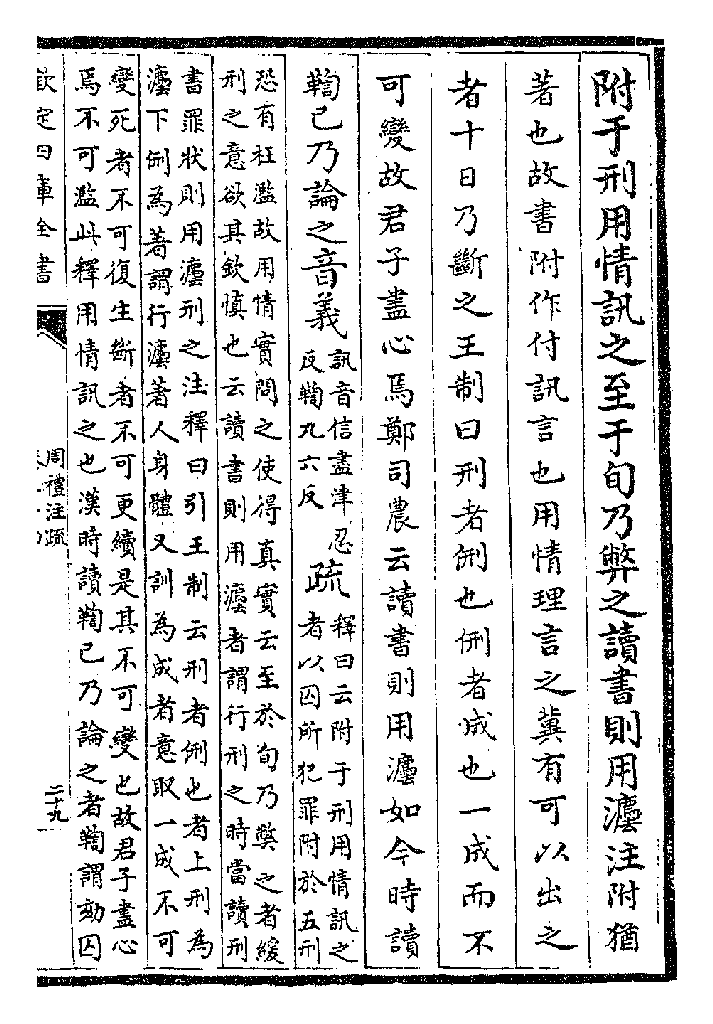 附于刑用情訊之至于旬乃弊之讀書則用灋注附猶
著也故書附作付訊言也用情理言之冀有可以出之
者十日乃斷之王制曰刑者侀也侀者成也一成而不
可變故君子盡心焉鄭司農云讀書則用灋如今時讀
鞫已乃論之音義訊音信盡津忍
反鞫九六反
疏釋曰云附于刑用情訊之
者以囚所犯罪附於五刑
恐有枉濫故用情實問之使得真實云至於旬乃弊之者緩
刑之意欲其欽慎也云讀書則用灋者謂行刑之時當讀刑
書罪狀則用灋刑之注釋曰引王制云刑者侀也者上刑為
灋下侀為著謂行灋著人身體又訓為成者意取一成不可
變死者不可復生斷者不可更續是其不可變也故君子盡心
焉不可濫此釋用情訊之也漢時讀鞫已乃論之者鞫謂劾囚
欽定四庫全書
周禮注疏
二十九